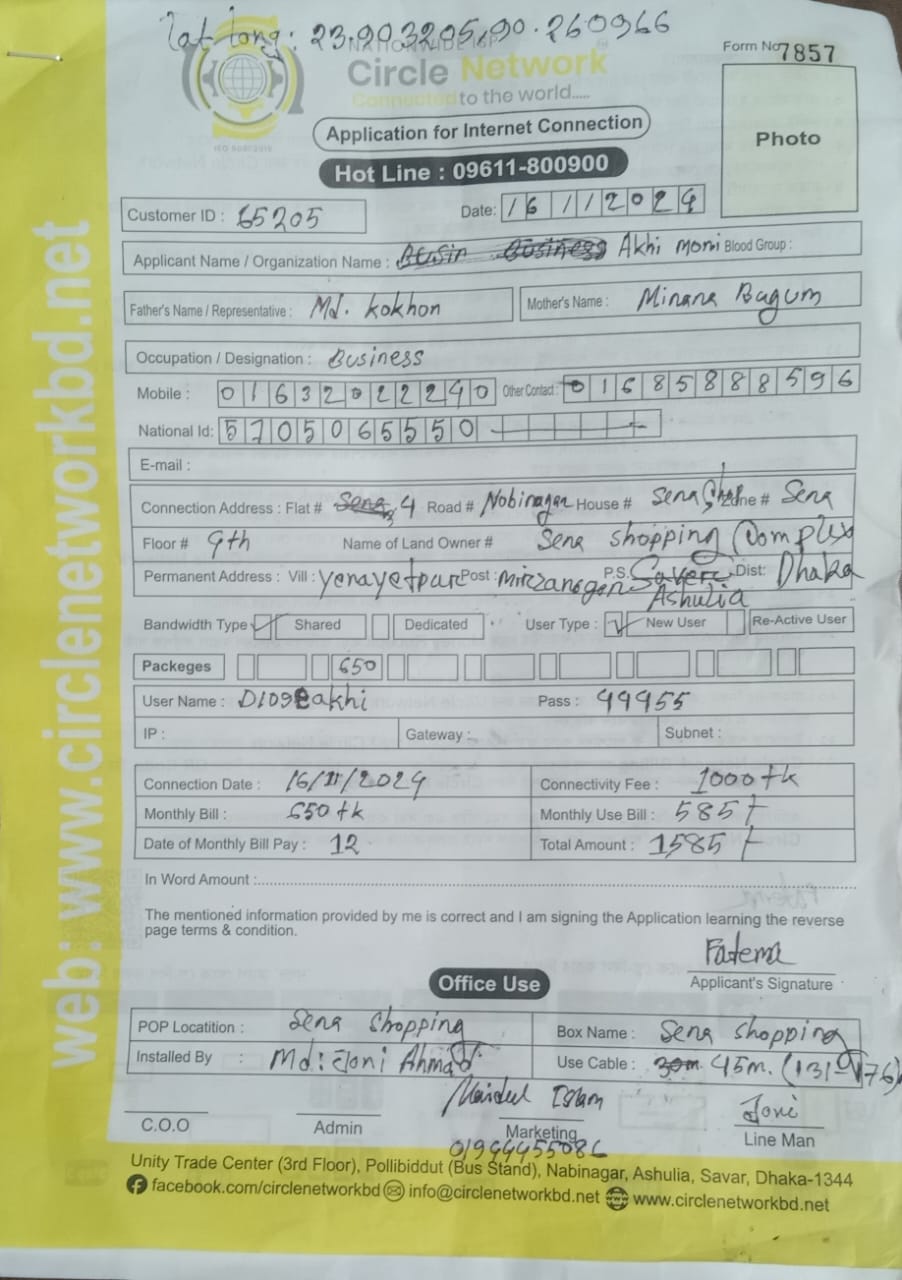 lat long: 23.903205, 90.260966
NATIONWIDE ISP
Circle Network
Connected to the world.....
ISO 9001:2015
Form No 7857
Photo
Application for Internet Connection
Hot Line : 09611-800900
Customer ID : 65205
Date: 16 11 2024
Applicant Name / Organization Name : Akhi moni Blood Group :
Father's Name / Representative : Md. Kokhon Mother's Name : Minara Bagum
Occupation / Designation : Business
Mobile : 01632022240 Other Contact : 01685888596
National Id: 5705065550
E-mail :
Connection Address : Flat # 4 Road # Nobinagar House # Sena Shop Zone # Sena
Floor # 9th Name of Land Owner # Sena shopping Complex
Permanent Address : Vill : yenayetpur Post : mirzanagar P.S. Ashulia Dist: Dhaka
Bandwidth Type Shared Dedicated User Type : New User Re-Active User
Packeges 650
User Name : Pass : 99955
IP : Gateway : Subnet :
Connection Date : 16/11/2024 Connectivity Fee : 1000 tk
Monthly Bill : 650 tk Monthly Use Bill : 585 t
Date of Monthly Bill Pay : 12 Total Amount : 1585 t
In Word Amount :
The mentioned information provided by me is correct and I am signing the Application learning the reverse
page terms & condition.
Fatema
Applicant's Signature
Office Use
POP Locatition : Sena Shopping Box Name : Sena shopping
Installed By : Md: Joni Ahmad Use Cable : 45m. (131-176)
Islam Joni
C.O.O Admin Marketing Line Man
Unity Trade Center (3rd Floor), Pollibiddut (Bus Stand), Nabinagar, Ashulia, Savar, Dhaka-1344
facebook.com/circlenetworkbd info@circlenetworkbd.net www.circlenetworkbd.net
web: www.circlenetworkbd.net